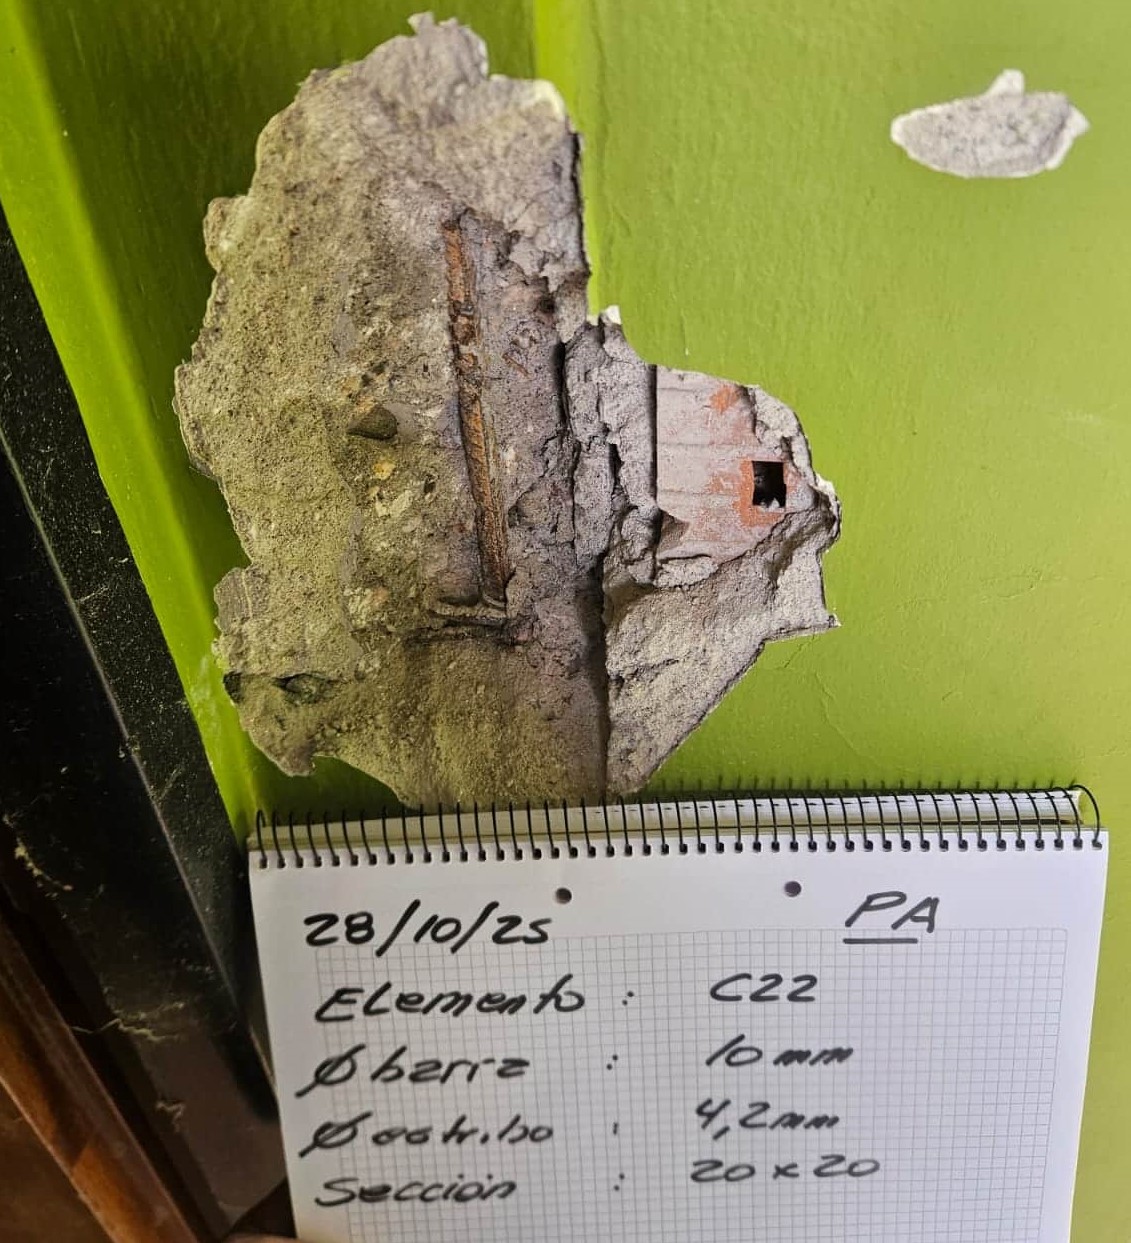 28/10/25 PA
Elemento : C22
Ø barra : 10 mm
Ø estribo : 4,2 mm
Sección : 20 x 20